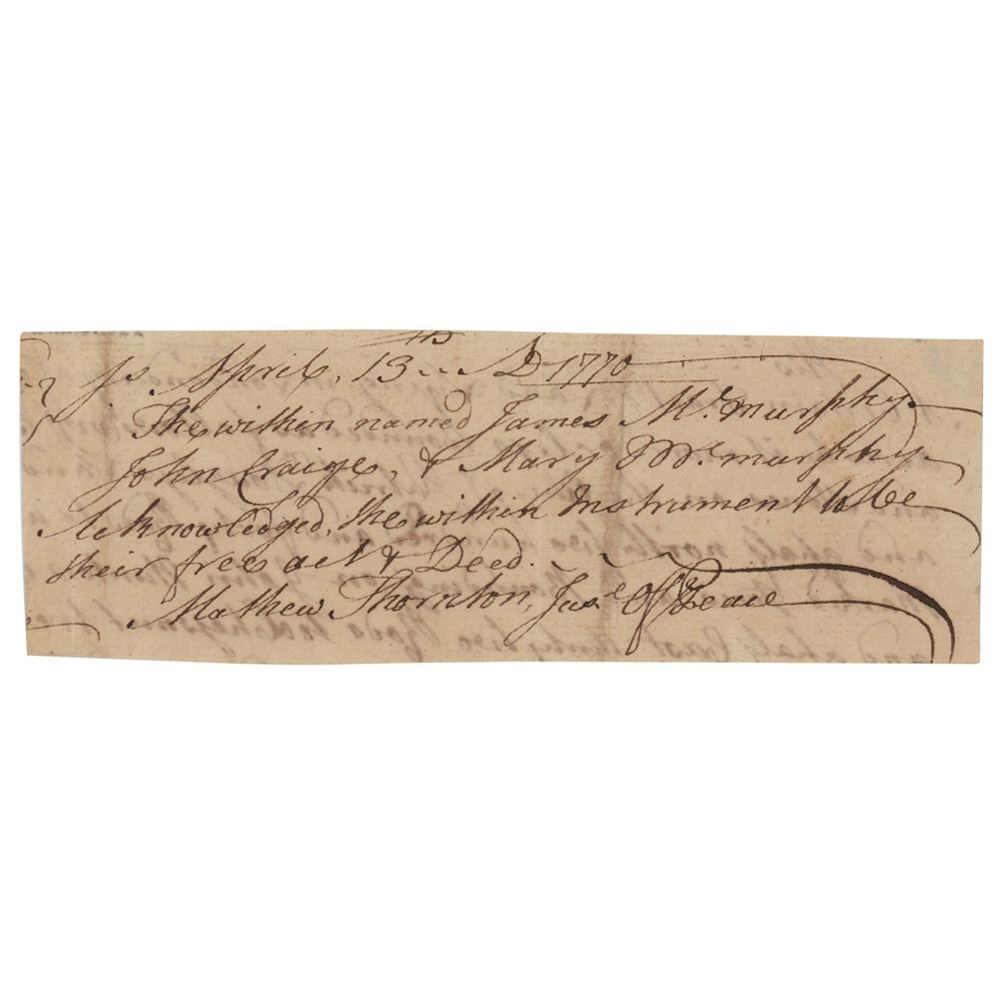 ss. April, 13th AD 1770
The within named James Mc.murphy.
John Craige, & Mary Mc.murphy.
Acknowledged, the within Instrument to be
their free act & Deed.
Mathew Thornton, Juse. Of Peace